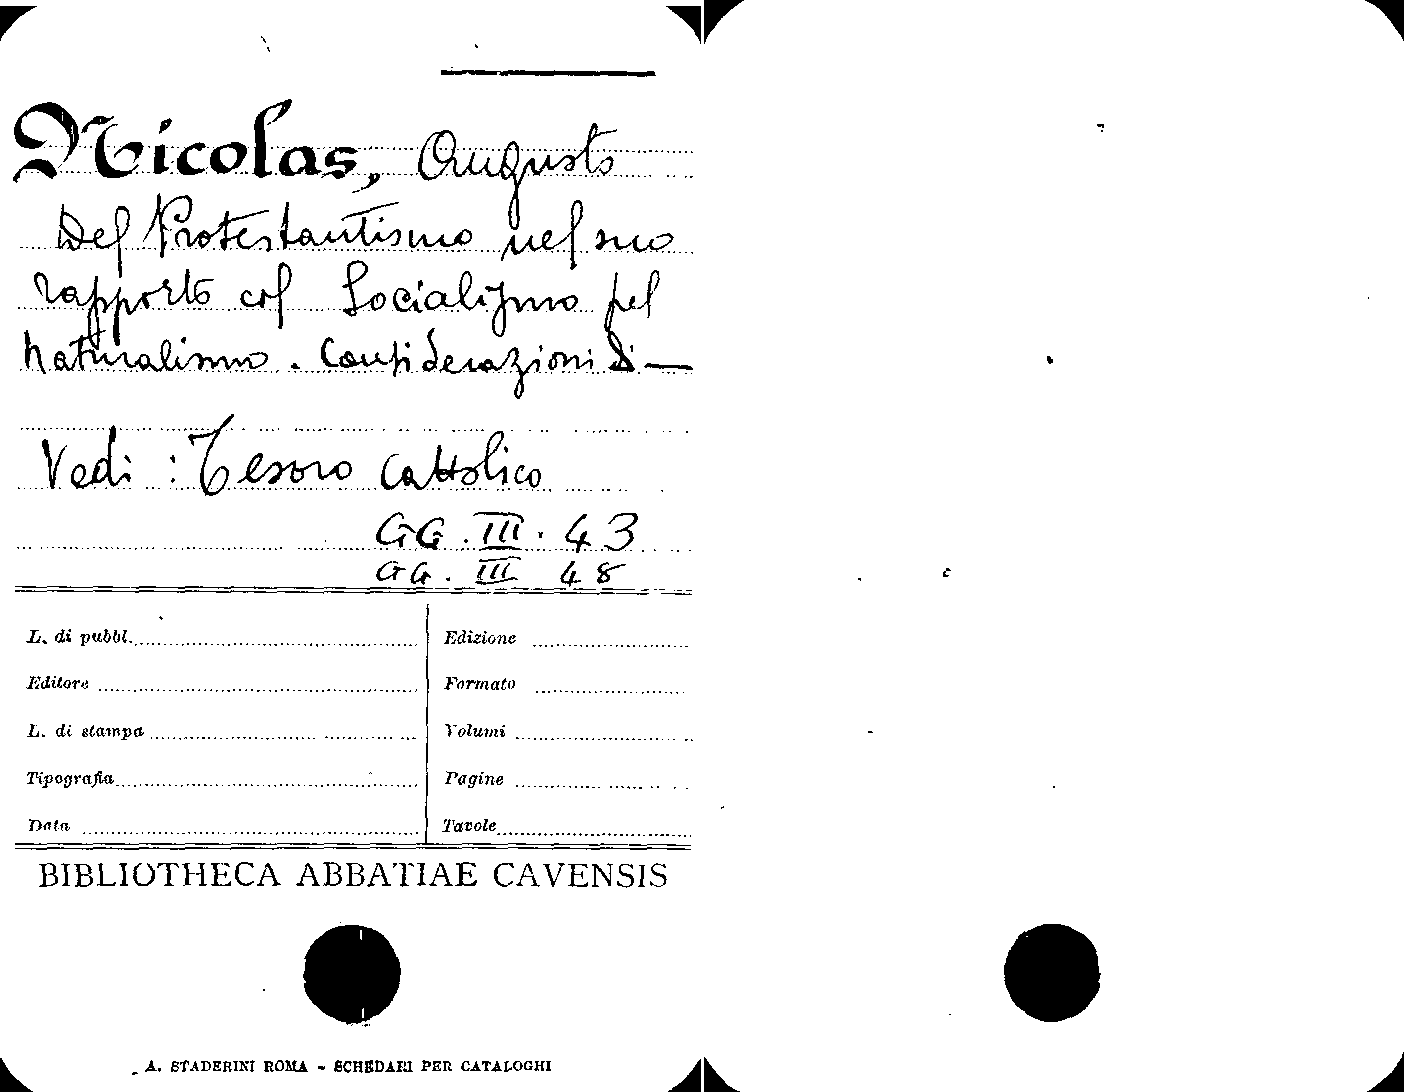 Nicolas, Augusto
Del Protestantismo nel suo
rapporto col Socialismo pel
naturalismo. Considerazioni di —
Vedi : Tesoro Cattolico
GG. III. 43
GG. III 48
L. di pubbl.
Edizione
Editore
Formato
L. di stampa
Volumi
Tipografia
Pagine
Data
Tavole
BIBLIOTHECA ABBATIAE CAVENSIS
A. STADERINI ROMA - SCHEDARI PER CATALOGHI